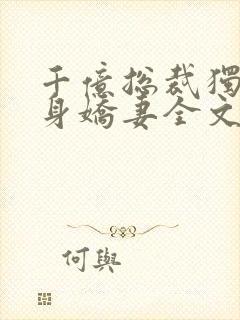 千億总裁獨
身嬌妻全文
何與